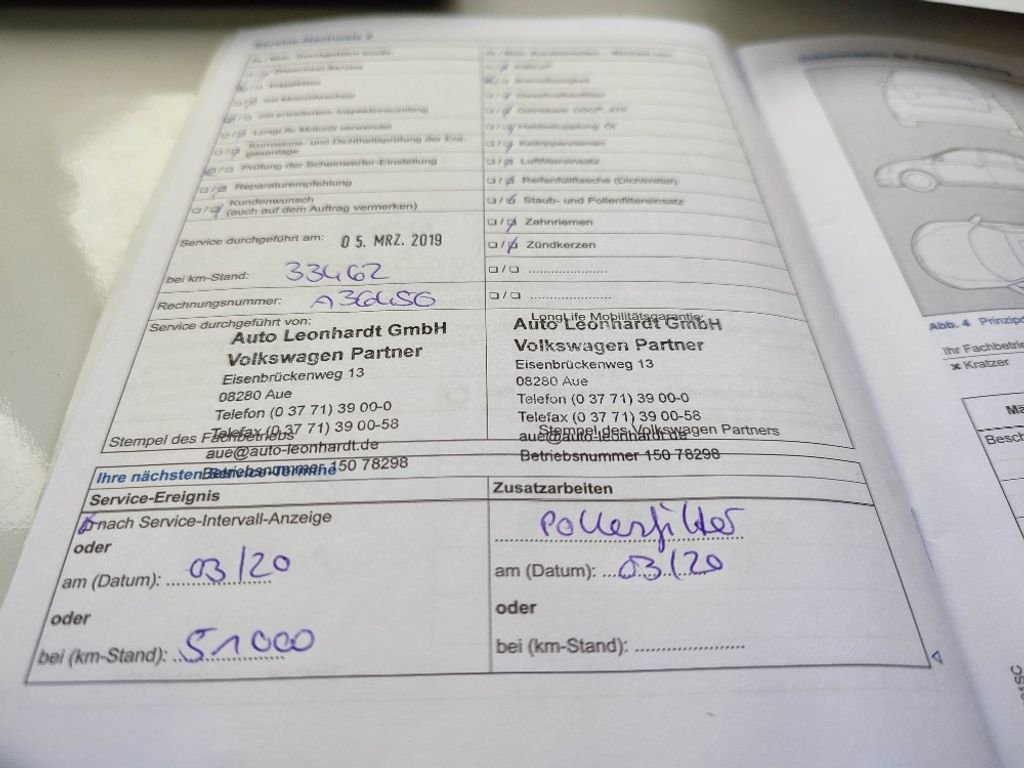 Service-Nachweis
Inspektion
mit Motorölwechsel
mit erweitertem Inspektionsumfang
LongLife Motoröl verwendet
Korrosions- und Dichtheitsprüfung der Erdgasanlage
Prüfung der Scheinwerfer-Einstellung
Reparaturempfehlung
Kundenwunsch
(auch auf dem Auftrag vermerken)
Service durchgeführt am: 05. MRZ. 2019
bei km-Stand: 33462
Rechnungsnummer: A36456
Service durchgeführt von:
Auto Leonhardt GmbH
Volkswagen Partner
Eisenbrückenweg 13
08280 Aue
Telefon (0 37 71) 39 00-0
Telefax (0 37 71) 39 00-58
Stempel des Fachbetriebs
aue@auto-leonhardt.de
Betriebsnummer 150 78298
Keilrippenriemen
Luftfiltereinsatz
Reifenfüllflasche (Dichtmittel)
Staub- und Pollenfiltereinsatz
Zahnriemen
Zündkerzen
LongLife Mobilitätsgarantie:
Auto Leonhardt GmbH
Volkswagen Partner
Eisenbrückenweg 13
08280 Aue
Telefon (0 37 71) 39 00-0
Telefax (0 37 71) 39 00-58
Stempel des Volkswagen Partners
aue@auto-leonhardt.de
Betriebsnummer 150 78298
Ihre nächsten Service-Termine
Service-Ereignis
nach Service-Intervall-Anzeige
oder
am (Datum): 03/20
oder
bei (km-Stand): 51000
Zusatzarbeiten
Pollenfilter
am (Datum): 03/20
oder
bei (km-Stand):
Abb. 4
Ihr Fachbetrieb
Kratzer